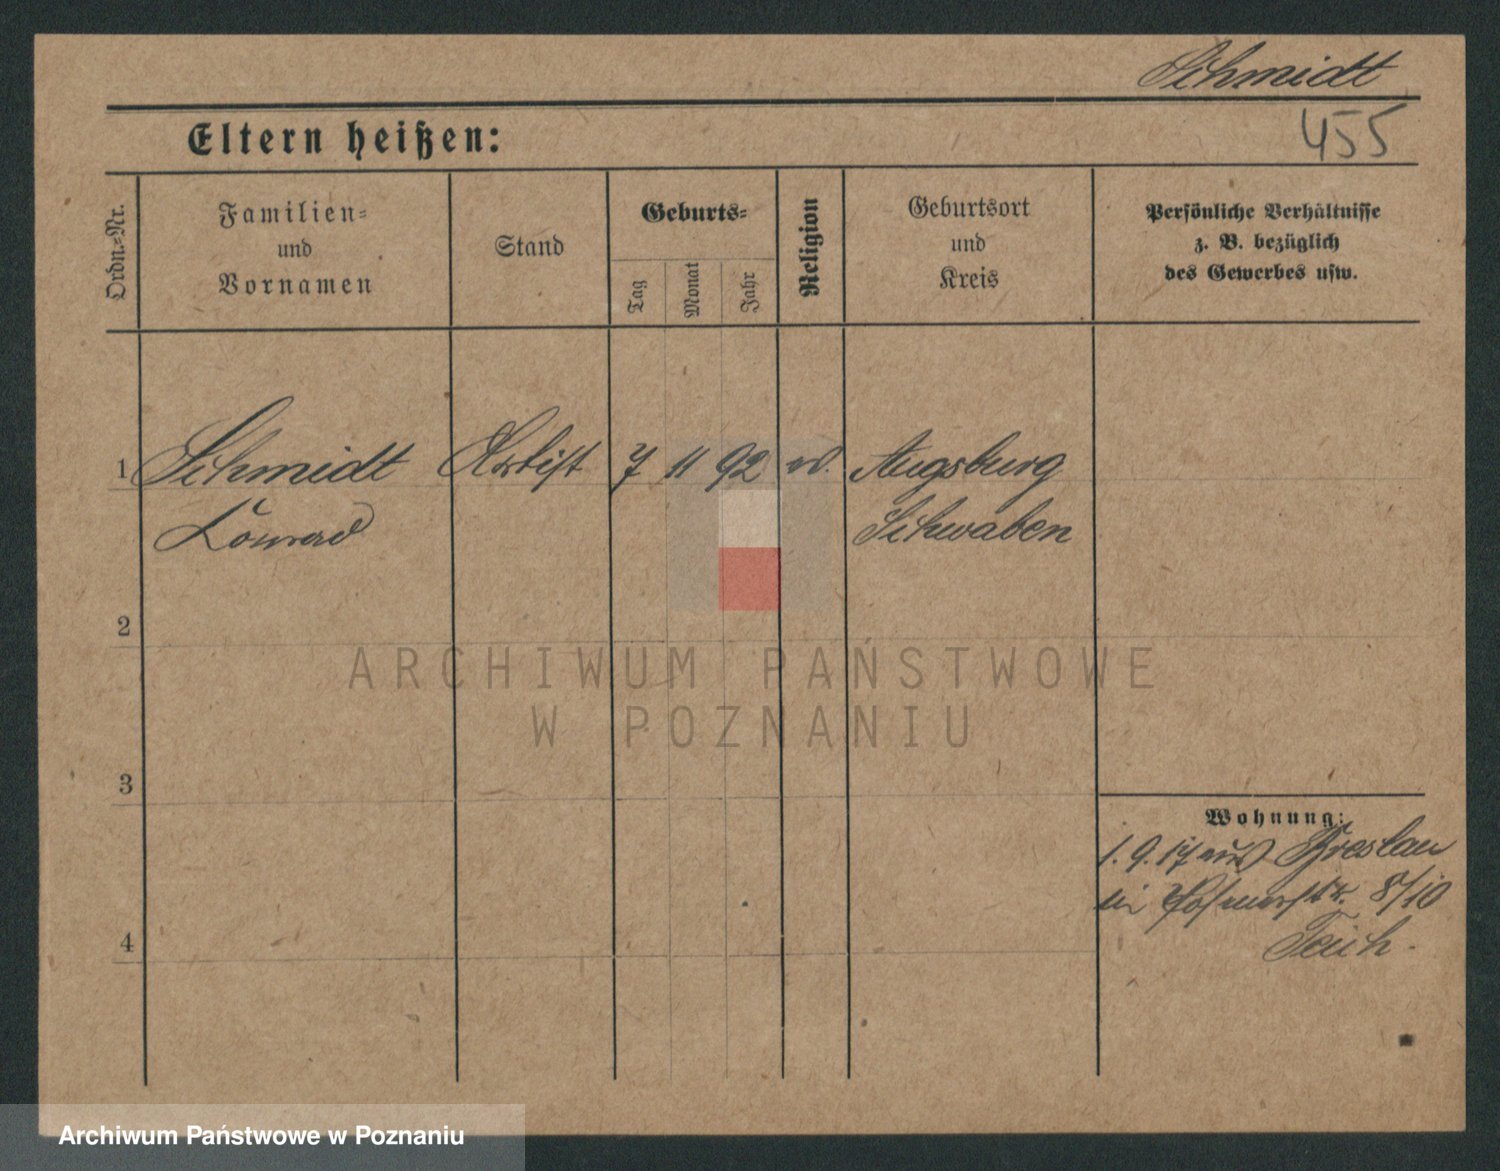 Schmidt
455
Eltern heißen:
Ordn.-Nr.
Familien-
und
Vornamen
Stand
Geburts-
Tag
Monat
Jahr
Religion
Geburtsort
und
Kreis
Persönliche Verhältnisse
z. B. bezüglich
des Gewerbes usw.
1 Schmidt Artist 7 11 92 Augsburg
Konrad Schwaben
2
3
4
Wohnung:
1. 9. 17 aus Breslau
bei Posenerstr. 8/10
Teich.
ARCHIWUM PAŃSTWOWE
W POZNANIU
Archiwum Państwowe w Poznaniu